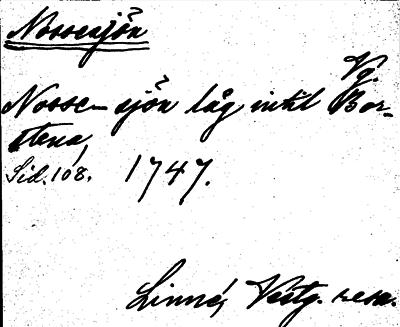 Nossesjön
Vg.
Nosse-sjön låg intil Bor-
stena,
Sid. 108. 1747.
Linné, Vestg. resa.